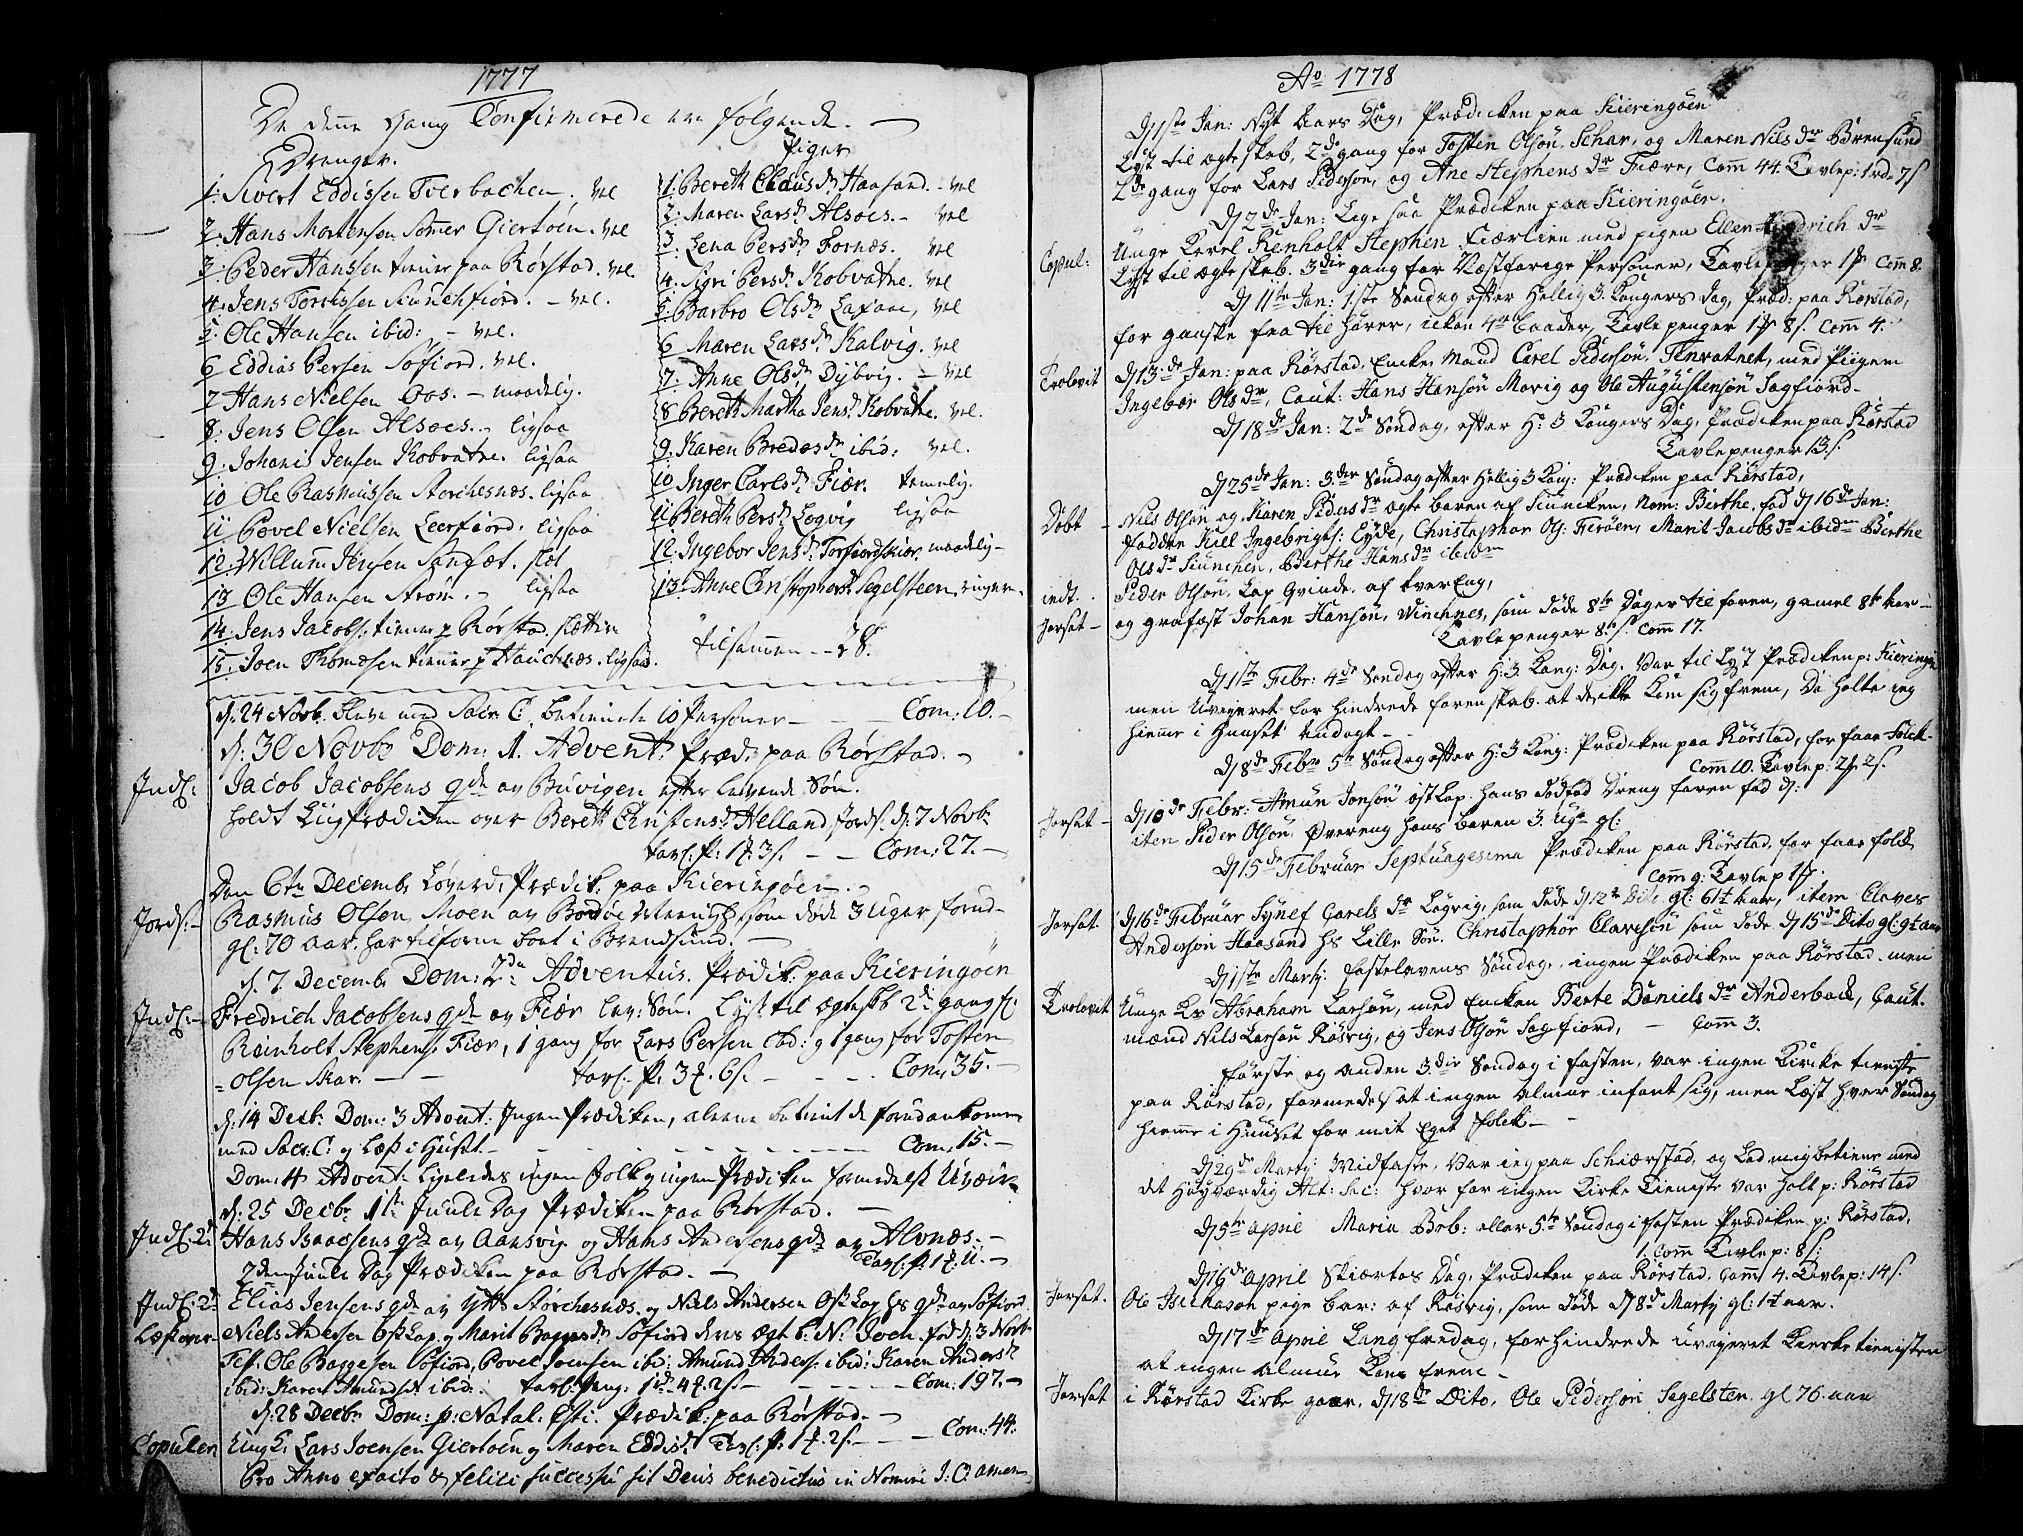 1777
De denne gang Confirmerede ere følgende. —
Drenger.
1. Sivert Eddissen Tverbachen. vel
2. Hans Mortensen Sømer Giertøen. vel
3. Peder Hanssen tiener paa Rørstad. vel
4. Jens Torrissen Siunchfiord. — vel.
5. Ole Hansen ibid: — vel.
6 Eddias Persen Søfiord. vel.
7 Hans Nielsen Oos. — maadelig.
8. Jens Olsen Alsoes. ligsaa
9. Johanis Jensen Kobvatne. ligsaa
10 Ole Rasmussen Storchesnæs. ligsaa
11 Povel Nielsen Leerfiord. ligsaa
12. Willum Jensen Sanfæt. slet
13 Ole Hansen Strøm. — ligsaa
14 Jens Jacobs: tiener p Rørstad. slettere
15. Joen Thomesen tiener p Hauchnæs. ligsaa.
Piger
1. Bereth Clausdr Haasand. — vel
2. Maren Larsdr Alsoes. — vel
3. Lena Persdr Fornæs. vel
4. Sigri Persdr Kobvatne. vel
5. Barbro Olsdr Laxaae, vel
6 Maren Larsdr Kalvig. vel
7. Anne Olsdr Dybvig. — vel
8 Bereth Martha Jensdr Kobvatne. vel.
9. Karen Bredesdr ibid: vel.
10 Inger Carlsdr Fiær. temelig.
11 Bereth Persdr Løgvig ligsaa
12. Ingebor Jensdr Torfiordskiær. maadelig —
13. Anne Christophersdr Segelsteen. ringere.
tilsammen — 28.
d: 24 Novb. bleve med Sacr. C. betiente 10 Personer — Com: 10. —
d: 30 Novb Dom: 1. Advent: Præd: paa Rørstad. —
Indl: Jacob Jacobsens qde av Buvigen efter levende Søn.
holdt Liigprædiken over Bereth Christensdr Helland jords. d: 7 Novb
tavl. p: 1 3 s. — — Com: 27. —
Den 6te Decemb Løverd. Prædik. paa Kieringøen —
Jords: — Rasmus Olsen Moen av Bodøe Menigh: som døde 3 uger forud —
gl: 70 aar. har tilforne boet i Brendsund. —
d. 7 Decemb Dom: 2da Adventus. Prædik. paa Kieringøen
Indl: — Fredrich Jacobsens qde av Fiær lev: Søn. Lyst til ægtesk 2de gang f:
Reinholt Stephens. Fiær, 1 gang for Lars Persen ibd: og 1 gang for Tosten
Olsen Skar. — — tavl. p. 3 6 s. — — Com: 35. —
d: 14 Decb: Dom: 3 Advent: Ingen Prædiken, alene betient de forudankomne
med Sacr: C: og læst i Huset — Com: 15. —
Dom: 4 Advent: Ligeledes ingen Folk og ingen Prædiken formedelst Uveir.
d: 25 Decbr 1ste Juule Dag Prædiken paa Rørstad. —
Indl. 2. Hans Isaacsens qde av Aansvig og Hans Andersens qde av Alvnæs. —
2den Juule Dag Prædiken paa Rørstad. — Tavl. p. 1 11. —
Indl: 2 Elias Jensens qde av Ytt Storchesnæs. og Niels Andersen Øst Lap hs qde av Søfiord
Læst over Niels Andersen Øst Lap. og Marit Baggesdr Søfiord deres ægt b. N: Joen. fød d: 3 Novb
Test. Ole Baggesen Søfiord, Povel Joensen ibid: Amund Anders: ibid: Karen Andersdr
ibid: Karen Amundsdr ibid: tavl. peng. 1 rd 4 2 s. — Com: 197. —
d: 28 Decbr Dom: p: Natal. Xsti. Prædik: paa Rørstad. —
Copuleret Ung k. Lars Joensen Giertøen og Maren Eddisdr Tavl. p. 1 2 s. — — Com: 44.
Pro Anno exacto & felici successu sit Deus benedictus in Nomine J. C. amen
Ao 1778
D 1ste Jan: Nyt Aars Dag, Prædicken paa Kieringøen
Lyst til ægteskab, 2de gang for Tosten Olsøn. Schar, og Maren Nilsdr Brensund
2de gang for Lars Pedersøn, og Ane Stephensdr Fiære, Com 44. Tavlep: 1 rd 7 s
D 2de Jan: Lige saa Prædicken paa Kieringøen.
Copul: Unge Karel Renholt Stephen. Fiærlien med pigen Ellen Fredrichdr
Lyst til ægteskab. 3die gang for Næstforige Personer, Tavle penger 1 Com 8.
D 11te Jan: 1ste Søndag efter Hellig 3. Kongers Dag, Præd: paa Rørstad,
for ganske faa til hører, icken 4re baader, Tavle penger 1 8 s. Com 4.
Trolovit D 13de Jan: paa Rørstad, Encke Mand Carel Pedersøn. Tenvatnet, med Piigen
Ingebor Olsdr, Caut: Hans Hansøn Movig og Ole Augustensøn Sagfiord —
D 18de Jan: 2de Søndag, efter H: 3 Kongers Dag, Prædicken paa Rørstad
Tavlepenger 13 s.
D 25de Jan: 3die Søndag efter Hellig 3 Kong: Prædicken paa Rørstad,
Døbt — Nils Olsøn og Karen Pedersdr ægte baren af Siuncken, Nom: Birthe, fød D 16de Jan:
fadder Kiell Ingebrigts: Eyde, Christophor Ols: Ferøen, Marit Jacobsdr ibidm Birthe
Olsdr Siunchen, Birthe Hansdr ibidm
indt. Peder Olsøn, Lap Qvinde. af tverEng,
Jorset — og grafæst Johan Hansøn, Winchnes, som døde 8te Dager til foren, gamel 84 aar —
Tavle penger 8 s. Com 17.
D 1ste Febr: 4de Søndag efter H: 3. Kong: Dag, Var til Lyst Prædicken p: Kieringø
men Uveyeret for hindrede forenskab. at de ikke kom sig frem, Da holte ieg
hiemme i Huuset Andagt —
D 8de Febr 5te Søndag efter H: 3 Kong: Prædicken paa Rørstad, for faae Folck —
Com 10. Tavlep: 2 2 s.
Jorset — D 10de Febr: Amun Jonsøn østLap. hans dødfød Dreng foren fød D:
iten Peder Olsøn, Øvereng hans baren 3. uge gl:
D 15de Februar Septuagesima Prædicken paa Rørstad, for faae folck
Com 9: Tavlep 1
Jorset. D 16de Februar Synef Carelsdr Løgvig, som døde D 12te Dito gl: 61½ aar, item Claves
Andersøn Haasand hs Lille Søn. Christophor Clavesøn som døde D 15de Dito gl: 9½ aar
D 1ste Marty. fastelavens Søndag, ingen Prædicken paa Rørstad. men
Trolovit Unge Kr Abraham Larsøn, med Encken Berte Danielsdr Anderback, Caut.
mænd Nils Larsøn Røsvig, og Jens Olsøn Sagfiord, — Com 3.
første og anden 3die Søndag i fasten, var ingen Kircke tieniste
paa Rørstad, formedelst at ingen Almue infant sig, men Læst hver Søndag
hiemme i Huuset for mit Eget folck —
D 29de Marty: Midfaste, Var ieg paa Schiærstad, og Lod mig betiene med
det Høyværdig Alt: Sac: hvor for ingen Kirke Tieniste var holt p: Rørstad
D 5te April Maria Bob: eller 5te Søndag i fasten Prædicken p: Rørstad,
1. Com Tavlep: 8 s:
D 16de April Skiærtors Dag, Prædicken paa Rørstad, Com 4. Tavlep: 14 s.
Jorset. Ole Isachsøn pige bar: af Røsvig, som døde D 8de Marty gl: 1½ aar.
D 17de April Lang fredag, forhindrede uveyeret Kierketienisten
at ingen Almue kom frem —
Jorset i Rørstad Kirke gaar, D 18de Dito, Ole Pedersøn Segelsten. gl 76 aar